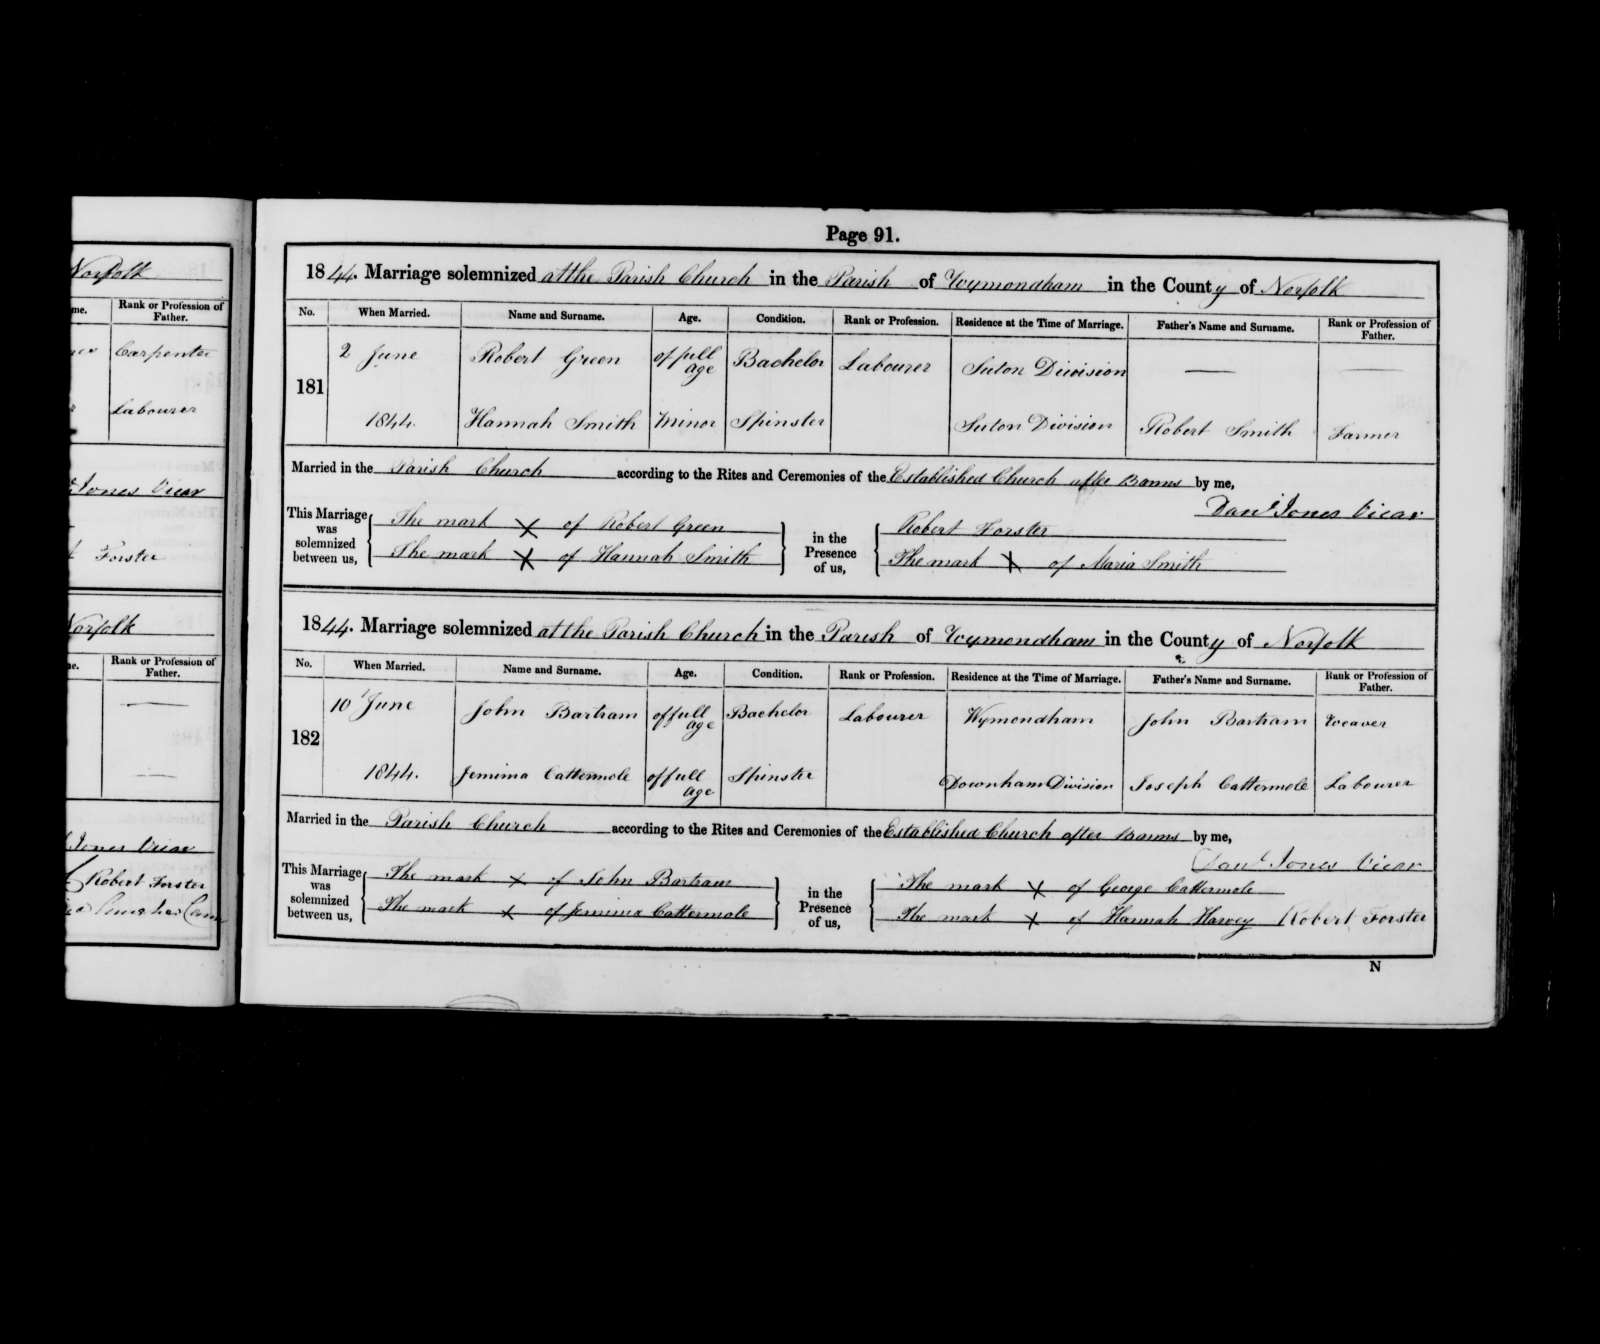 Norfolk
me.
Rank or Profession of
Father.
Carpenter
Labourer
Jones Vicar
Forster
Norfolk
ne.
Rank or Profession of
Father.
Jones Vicar
Robert Forster
Page 91.
1844. Marriage solemnized at the Parish Church in the Parish of Wymondham in the County of Norfolk
No.
When Married.
Name and Surname.
Age.
Condition.
Rank or Profession.
Residence at the Time of Marriage.
Father's Name and Surname.
Rank or Profession of
Father.
181
2 June
Robert Green
of full
age
Bachelor
Labourer
Suton Division
1844.
Hannah Smith
Minor
Spinster
Suton Division
Robert Smith
Farmer
Married in the Parish Church according to the Rites and Ceremonies of the Established Church after Banns by me,
Danl Jones Vicar
This Marriage
was
solemnized
between us,
The mark X of Robert Green
The mark X of Hannah Smith
in the
Presence
of us,
Robert Forster
The mark X of Maria Smith
1844. Marriage solemnized at the Parish Church in the Parish of Wymondham in the County of Norfolk
No.
When Married.
Name and Surname.
Age.
Condition.
Rank or Profession.
Residence at the Time of Marriage.
Father's Name and Surname.
Rank or Profession of
Father.
182
10 June
John Bartram
of full
age
Bachelor
Labourer
Wymondham
John Bartram
Weaver
1844.
Jemima Cattermole
of full
age
Spinster
Downham Division
Joseph Cattermole
Labourer
Married in the Parish Church according to the Rites and Ceremonies of the Established Church after Banns by me,
Danl Jones Vicar
This Marriage
was
solemnized
between us,
The mark X of John Bartram
The mark X of Jemima Cattermole
in the
Presence
of us,
The mark X of George Cattermole
The mark X of Hannah Harvey Robert Forster
N